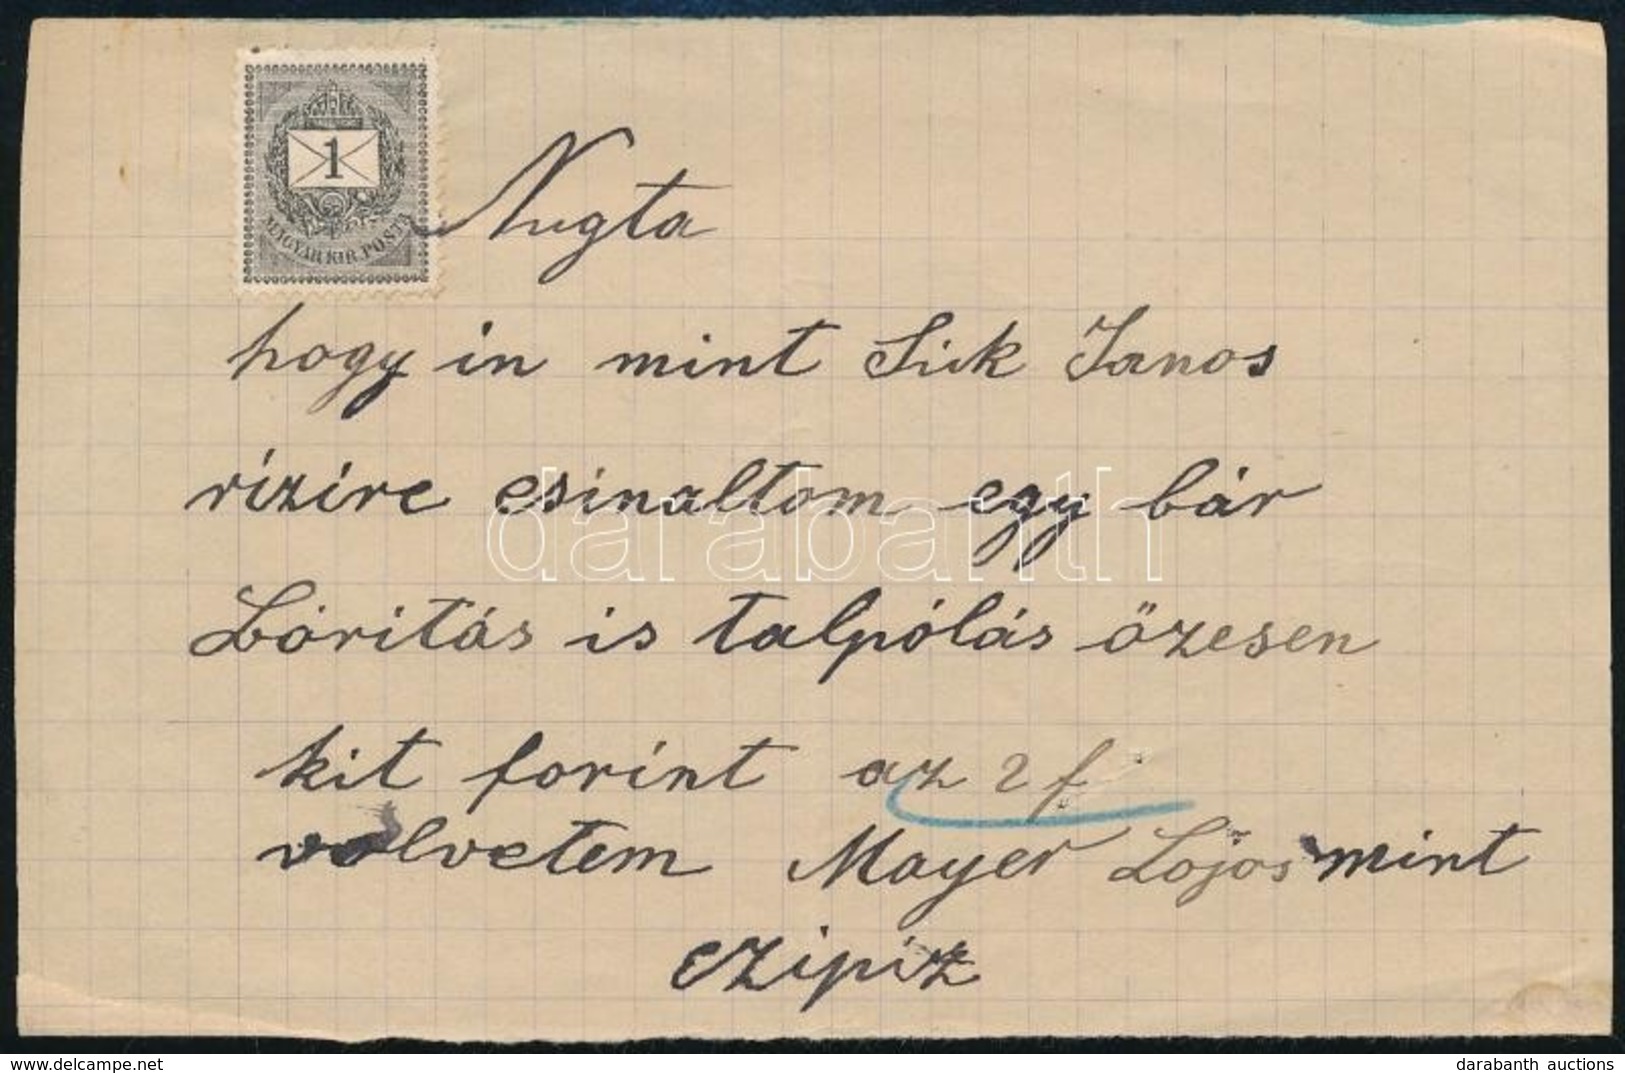 1
MAGYAR KIR. POSTA
Nugta
hogy in mint Sik Janos
rízíre csinaltom egy bár
Bóritás is talpólás őzesen
kit forínt az 2 f
volvetem Mayer Lojos mint
czipiz
darabanth
darabanth auctions